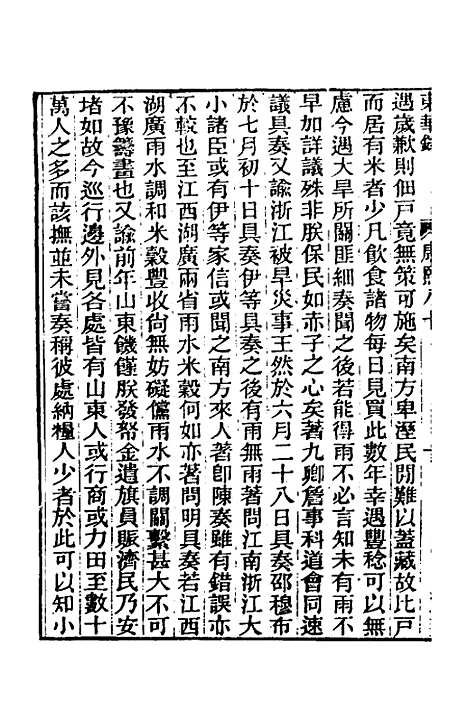 東華錄 康熙八十
遇歲歉則佃戶竟無策可施矣南方卑溼民閒難以蓋藏故比戶
而居有米者少凡飲食諸物每日見買此數年幸遇豐稔可以無
慮今遇大旱所關匪細奏聞之後若能得雨不必言知未有雨不
早加詳議殊非朕保民如赤子之心矣著九卿詹事科道會同速
議具奏又諭浙江被旱災事王然於六月二十八日具奏邵穆布
於七月初十日具奏伊等具奏之後有雨無雨著問江南浙江大
小諸臣或有伊等家信或聞之南方來人著卽陳奏雖有錯誤亦
不較也至江西湖廣兩省雨水米穀何如亦著問明具奏若江西
湖廣雨水調和米穀豐收尙無妨礙儻雨水不調關繫甚大不可
不豫籌畫也又諭前年山東饑饉朕發帑金遣旗員賑濟民乃安
堵如故今巡行邊外見各處皆有山東人或行商或力田至數十
萬人之多而該撫並未嘗奏稱彼處納糧人少者於此可以知小